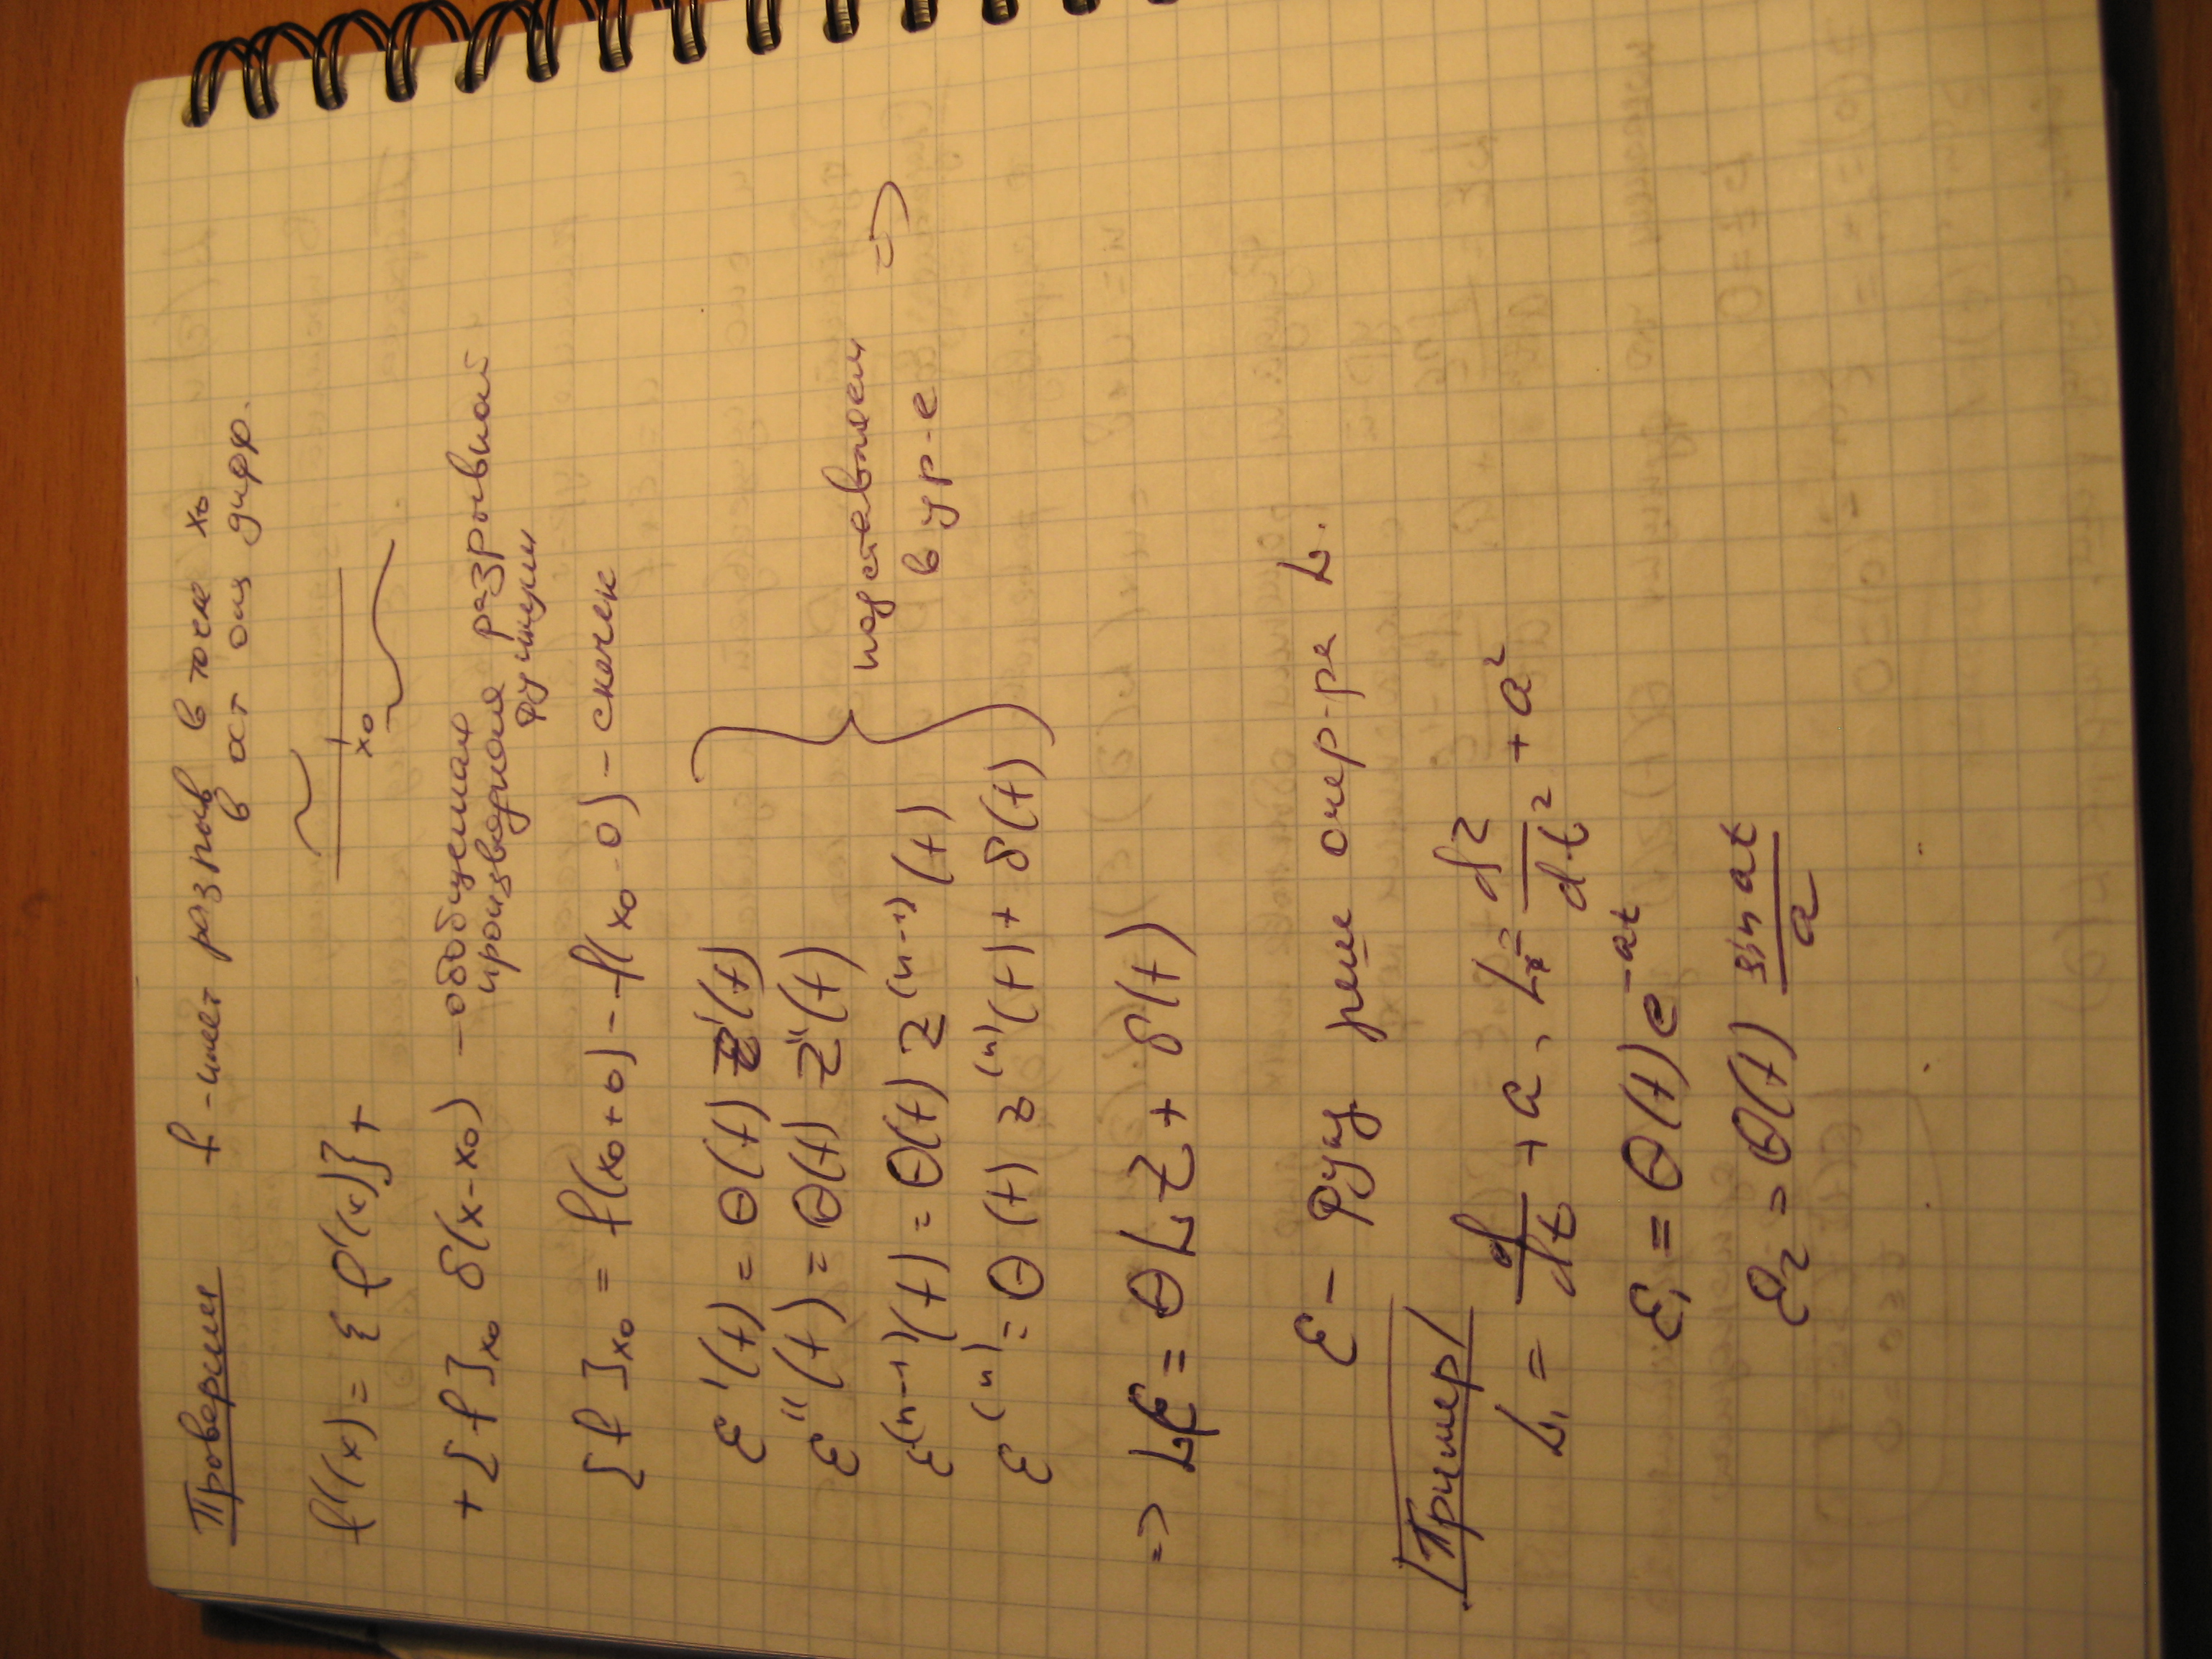 Проверим f - имеет разрыв в точке x₀
в ост он дифф.
f'(x) = { f'(x)} +
x₀
+ [f]ₓ₀ δ(x-x₀) - обобщенная
производная разрывной
функции
[f]ₓ₀ = f(x₀+0) - f(x₀-0) - скачек
ε'(t) = θ(t) z'(t)
ε''(t) = θ(t) z''(t)
подставляем =>
в ур-е
ε⁽ⁿ⁻¹⁾(t) = θ(t) z⁽ⁿ⁻¹⁾(t)
ε⁽ⁿ⁾ = θ(t) z⁽ⁿ⁾(t) + δ(t)
=> Lε = θ L z + δ(t)
ε - Фунд. реше опер-ра L.
Пример
L₁ = d/dt + a, L₂ = d²/dt² + a²
ε₁ = θ(t) e⁻ᵃᵗ
ε₂ = θ(t) sin at / a